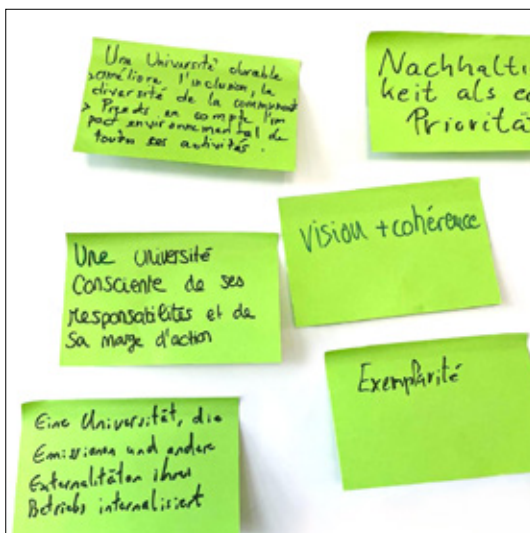 Une Université durable
> améliore l'inclusion, la
diversité de la communauté
> Prends en compte l'im
pact environnemental de
toutes ses activités.
Nachhalti
keit als e
Priorità
vision + cohérence
Une Université
Consciente de ses
responsabilités et de
Sa marge d'action
Exemplarité
Eine Universität, die
Emissionen und andere
Externalitäten ihres
Betriebs internalisiert